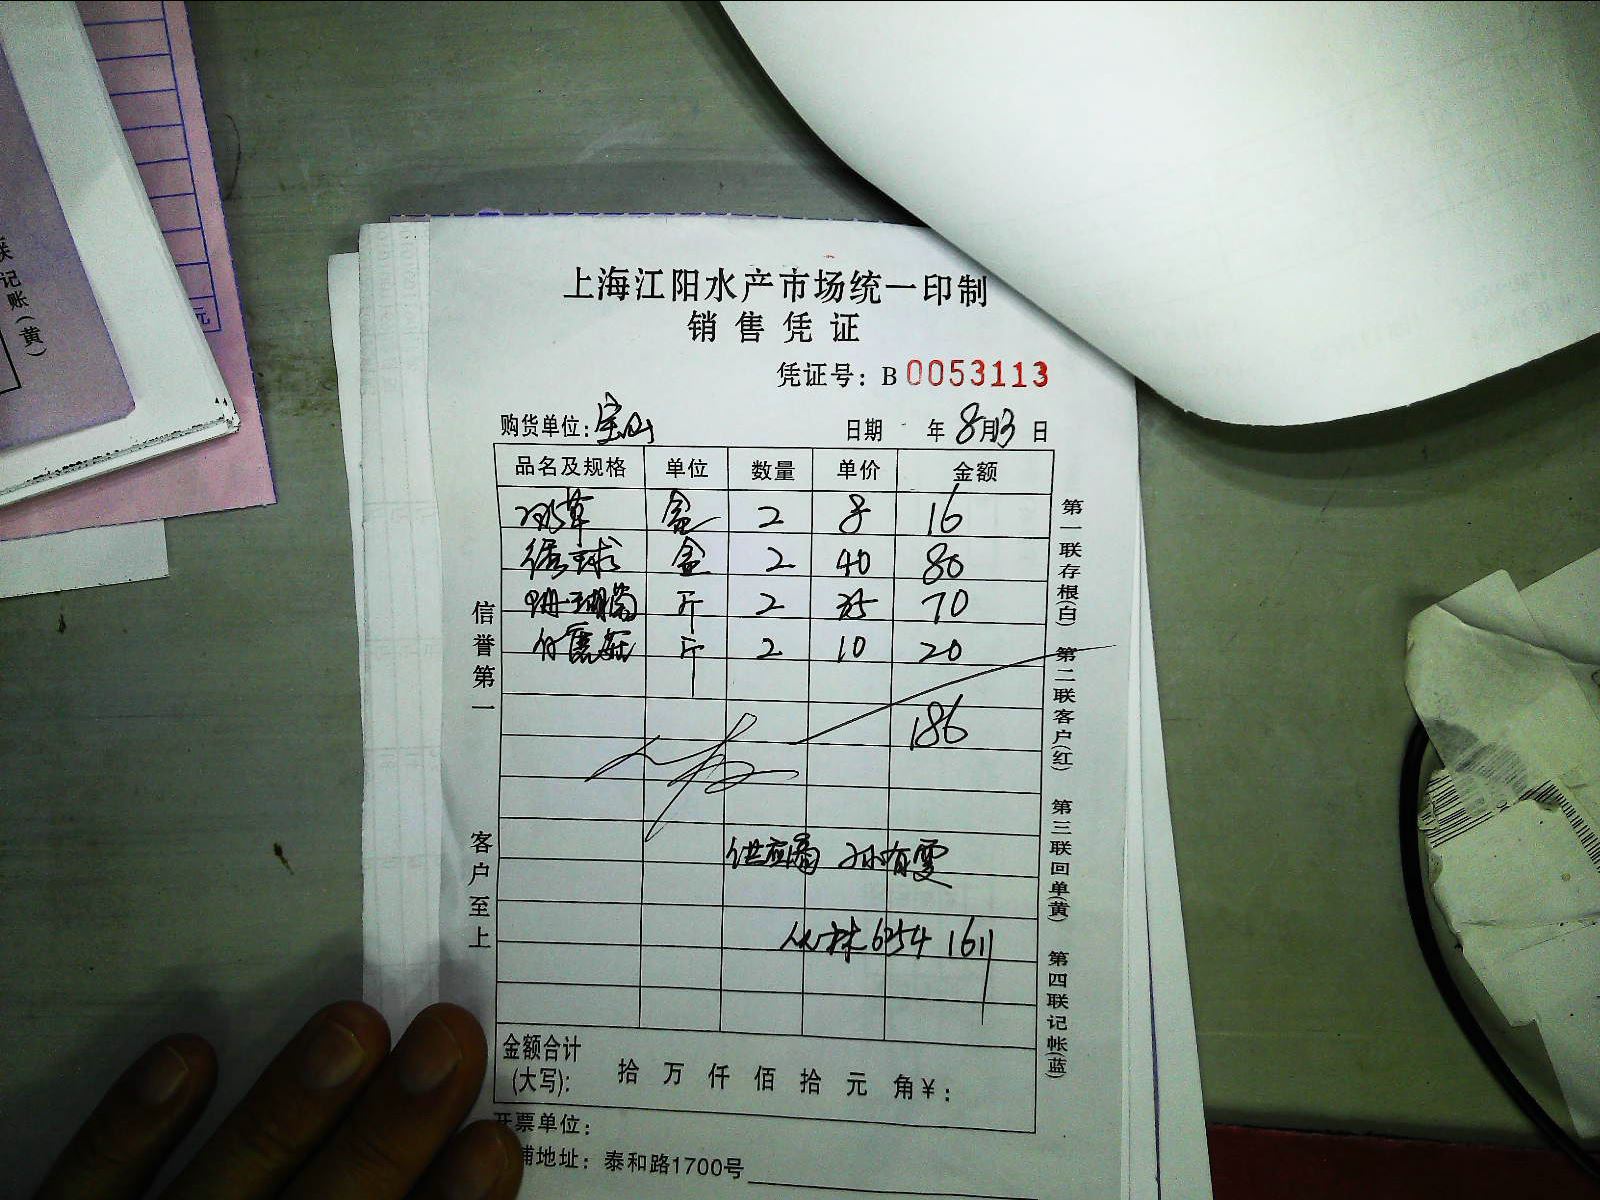 上海江阳水产市场统一印制
销售凭证
凭证号：B 0053113
购货单位：宝山 日期 年 8月3 日
品名及规格 单位 数量 单价 金额
盒 2 8 16
绣球 盒 2 40 80
珊瑚菌 斤 2 35 70
白鹿菇 斤 2 10 20
186
供应商 孙有雯
6254 1611
金额合计
(大写)： 拾 万 仟 佰 拾 元 角¥：
开票单位：
铺地址：泰和路1700号
信誉第一 客户至上
第一联存根(白) 第二联客户(红) 第三联回单(黄) 第四联记帐(蓝)
联记账(黄)
元